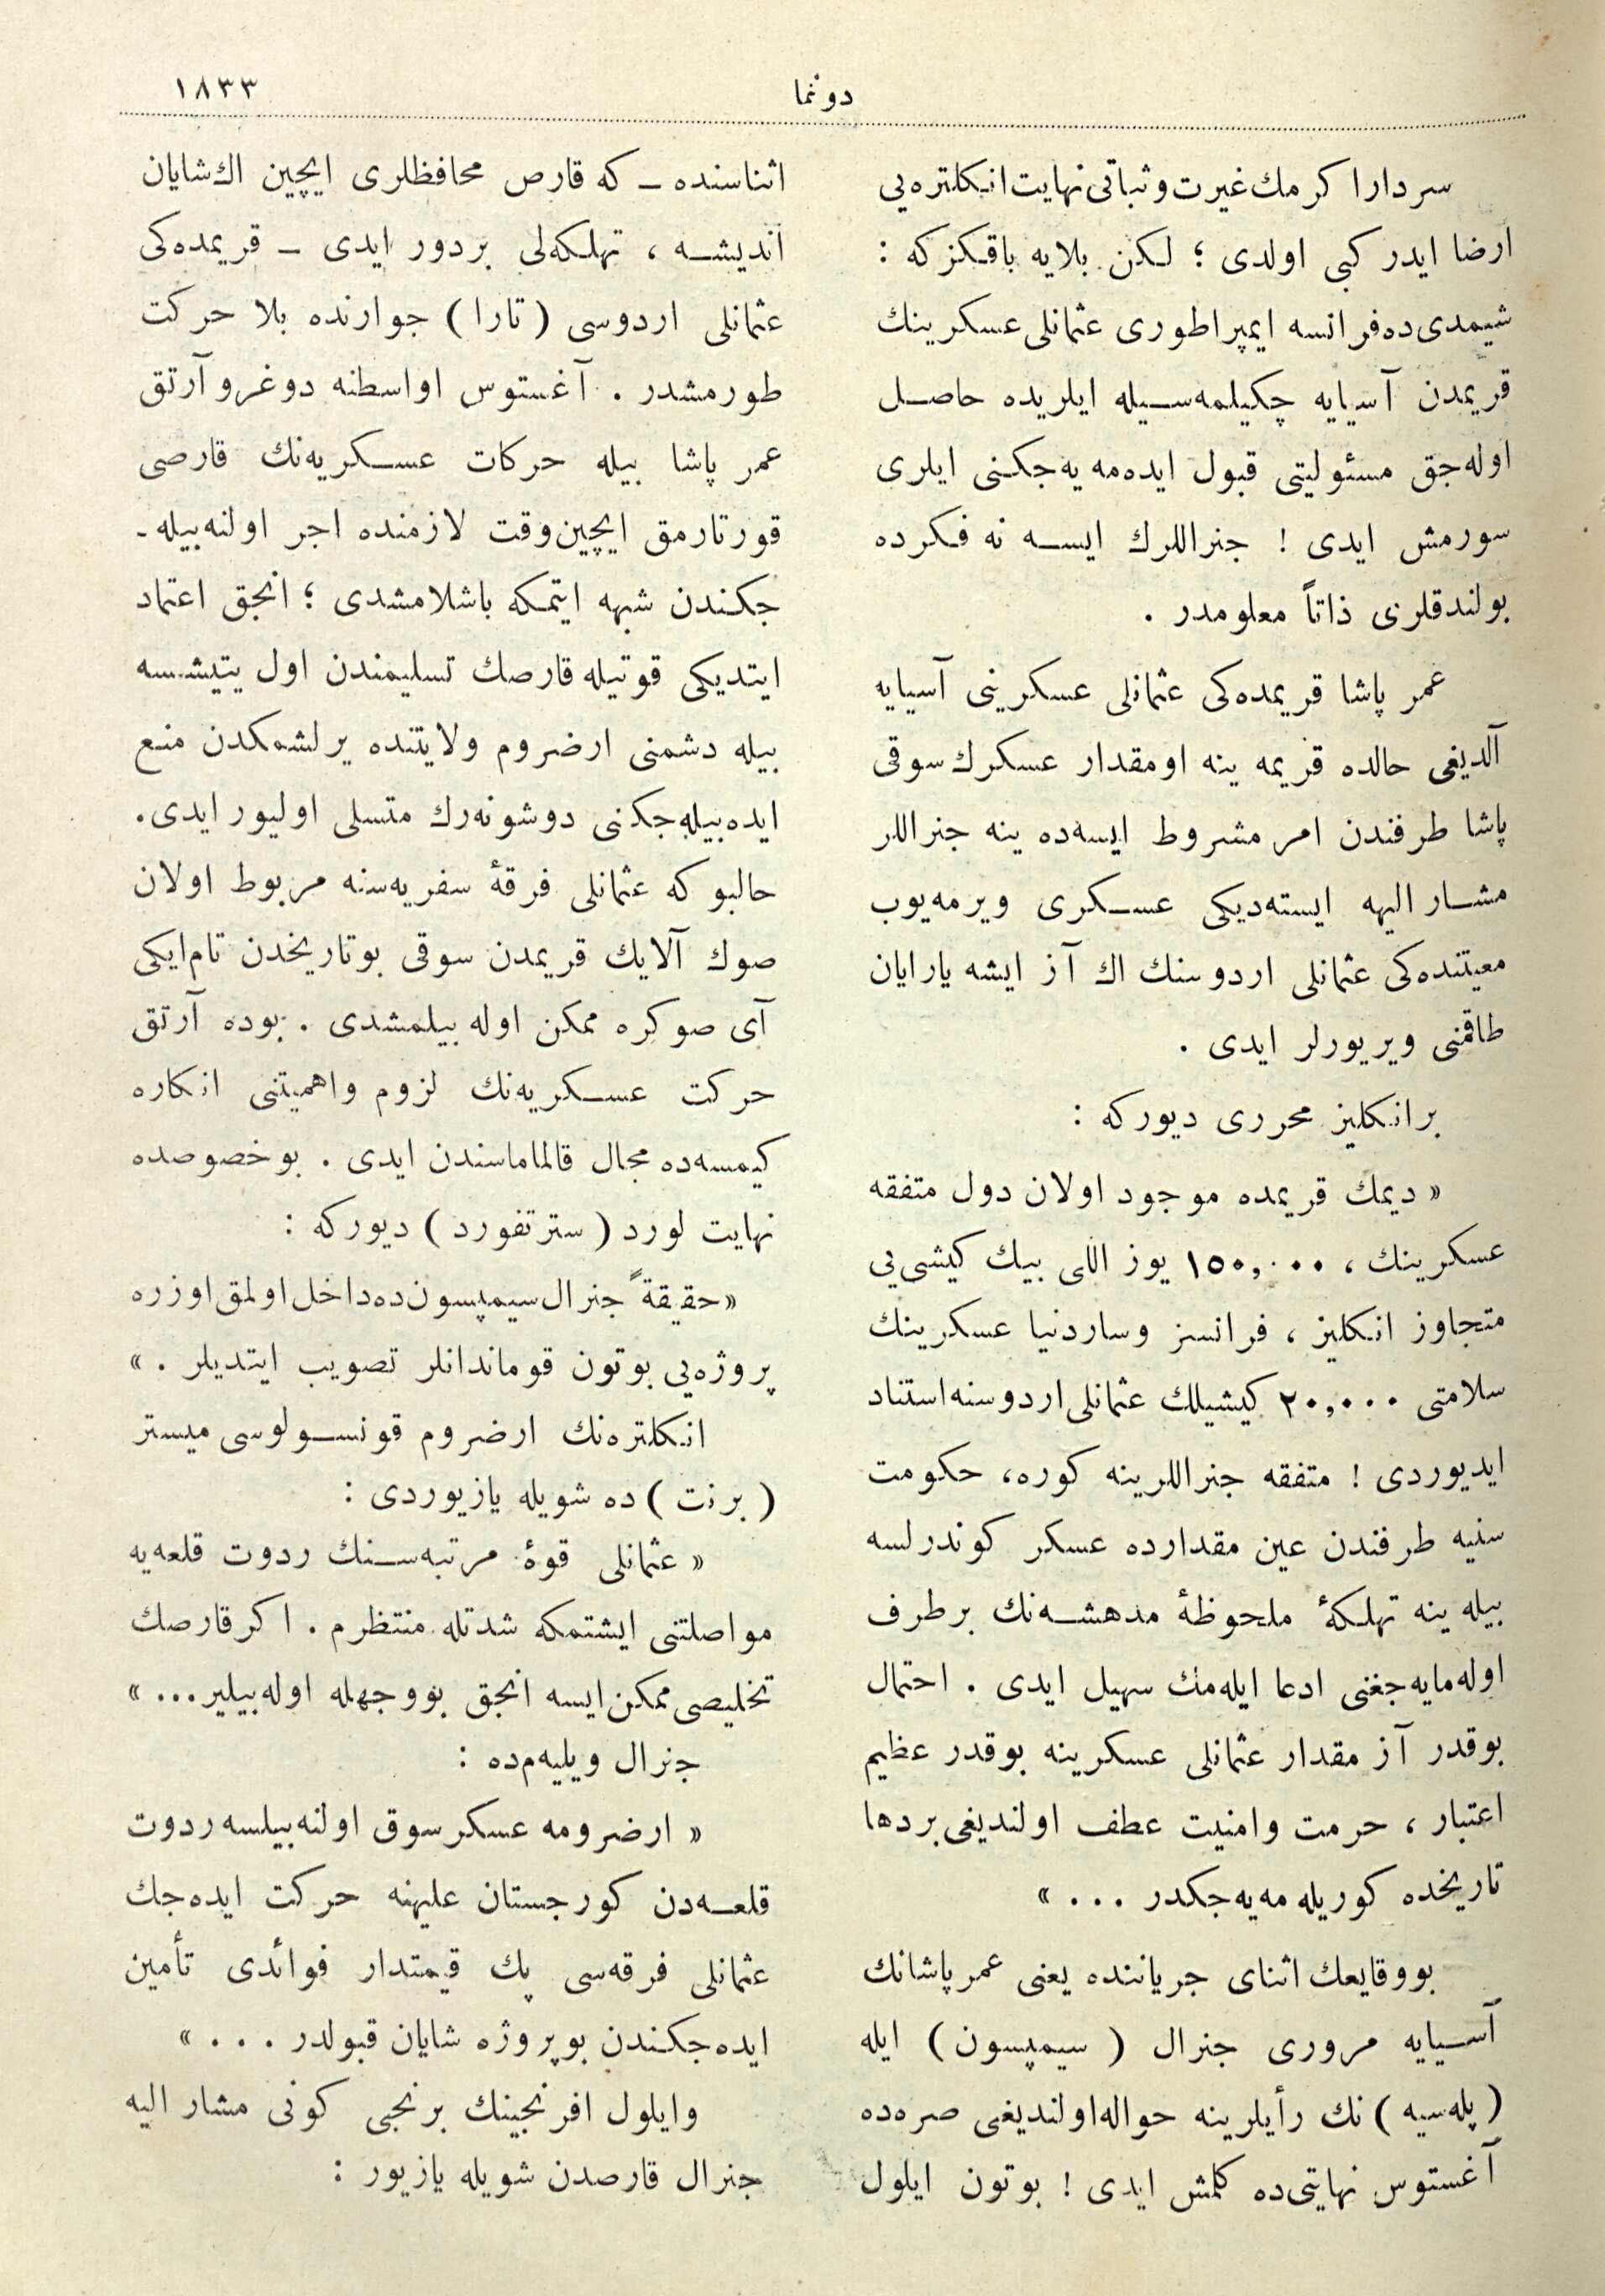 دونما
١٨٣٣
سردارا كرمك غيرت وثباتی نهايت انكلتره‌يی
ارضا ايدر كبی اولدی ؛ لكن بلايه باقكزكه :
شيمدی‌ده فرانسه ايمپراطوری عثمانلی عسكرينك
قريمدن آسيايه چكيلمه‌سيله ايلريده حاصل
اوله‌جق مسئوليتی قبول ايده‌مه‌يه‌جكنی ايلری
سورمش ايدی ! جنراللرك ايسه نه فكرده
بولندقلری ذاتاً معلومدر .
عمر پاشا قريمده‌كی عثمانلی عسكرينی آسيايه
آلديغی حالده قريمه ينه اومقدار عسكرك سوقی
پاشا طرفندن امر مشروط ايسه‌ده ينه جنراللر
مشار اليهه ايسته‌ديكی عسكری ويرمه‌يوب
معيتنده‌كی عثمانلی اردوسنك اك آز ايشه يارايان
طاقمنی ويريورلر ايدی .
برانكليز محرری ديوركه :
« ديمك قريمده موجود اولان دول متفقه
عسكرينك ، ١٥٠,٠٠٠ يوز اللی بيك كيشی‌يی
متجاوز انكليز ، فرانسز وساردنيا عسكرينك
سلامتی ٢٠,٠٠٠ كيشيلك عثمانلی اردوسنه استناد
ايديوردی ! متفقه جنراللرينه كوره، حكومت
سنيه طرفندن عين مقدارده عسكر كوندرلسه
بيله ينه تهلكهٔ ملحوظهٔ مدهشه‌نك برطرف
اوله‌مايه‌جغنی ادعا ايله‌مك سهيل ايدی . احتمال
بوقدر آز مقدار عثمانلی عسكرينه بوقدر عظيم
اعتبار ، حرمت وامنيت عطف اولنديغی بردها
تاريخده كوريله‌مه‌يه‌جكدر ... »
بووقايعك اثنای جرياننده يعنی عمرپاشانك
آسيايه مروری جنرال ( سيمپسون ) ايله
( پله‌سيه ) نك رأيلرينه حواله‌اولنديغی صره‌ده
آغستوس نهايتی‌ده كلمش ايدی ! بوتون ايلول
اثناسنده ــ كه قارص محافظلری ايچين اك شايان
انديشه ، تهلكه‌لی بردور ايدی ــ قريمده‌كی
عثمانلی اردوسی ( تارا ) جوارنده بلا حركت
طورمشدر . آغستوس اواسطنه دوغرو آرتق
عمر پاشا بيله حركات عسكريه‌نك قارصی
قورتارمق ايچين وقت لازمنده اجر اولنه‌بيله-
جكندن شبهه ايتمكه باشلامشدی ؛ انجق اعتماد
ايتديكی قوتيله قارصك تسليمندن اول يتيشسه
بيله دشمنی ارضروم ولايتنده يرلشمكدن منع
ايده‌بيله‌جكنی دوشونه‌رك متسلی اوليور ايدی.
حالبوكه عثمانلی فرقهٔ سفريه‌سنه مربوط اولان
صوك آلايك قريمدن سوقی بوتاريخدن تام‌ايكی
آی صوكره ممكن اوله بيلمشدی . بوده آرتق
حركت عسكريه‌نك لزوم واهميتنی انكاره
كيمسه‌ده مجال قالماماسندن ايدی . بو خصوصده
نهايت لورد ( سترتفورد ) ديوركه :
« حقيقةً جنرال سيمپسون‌ده داخل‌اولمق اوزره
پروژه‌يی بوتون قوماندانلر تصويب ايتديلر . »
انكلتره‌نك ارضروم قونسولوسی ميستر
( برنت ) ده شويله يازيوردی :
« عثمانلی قوهٔ مرتبه‌سنك ردوت قلعه‌يه
مواصلتنی ايشتمكه شدتله منتظرم . اكرقارصك
تخليصی ممكن ايسه انجق بووجهله اوله‌بيلير... »
جنرال ويليه‌م‌ده :
« ارضرومه عسكرسوق اولنه‌بيلسه ردوت
قلعه‌دن كورجستان عليهنه حركت ايده‌جك
عثمانلی فرقه‌سی پك قيمتدار فوائدی تأمين
ايده‌جكندن بوپروژه شايان قبولدر ... »
وايلول افرنجينك برنجی كونی مشار اليه
جنرال قارصدن شويله يازيور :